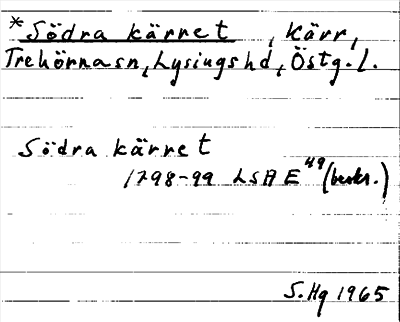 *Södra kärret, Kärr,
Trehörnasn, Lysingshd, Östg.l.
Södra kärret
1798-99 LSA E 49 (beskr.)
S.Hg 1965